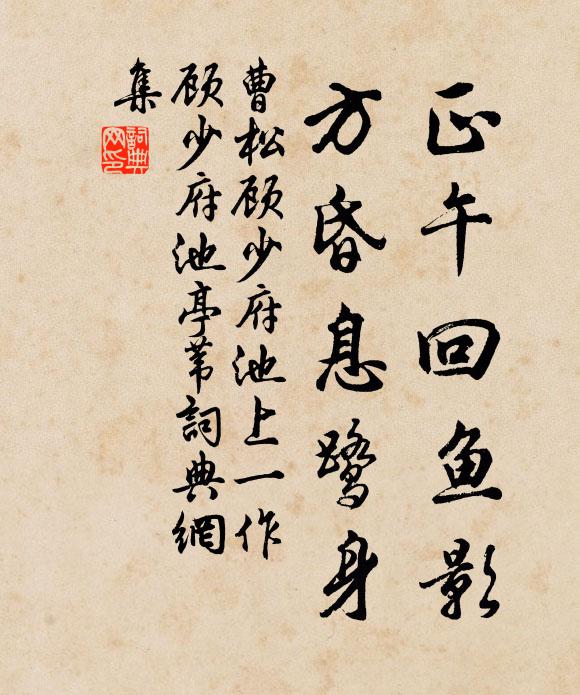 正午回鱼影
方昏息鹭身
曹松顾少府池上一作
顾少府池亭苇詞典網
集
詞典网印